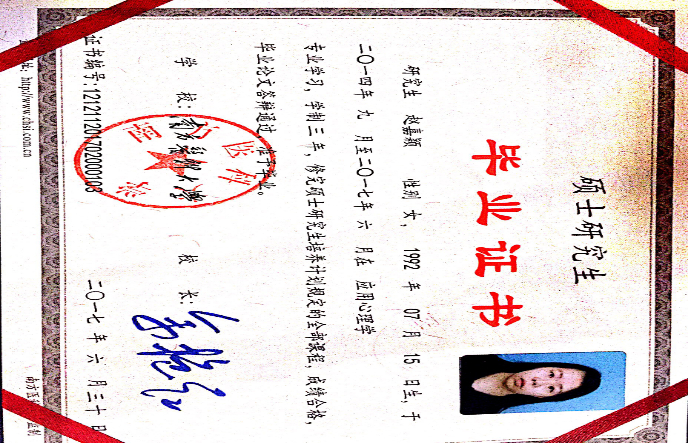 硕士研究生
毕业证书
研究生 赵嘉颖 性别 女， 1992 年 07 月 15 日生，于
二〇一四年 九 月至二〇一七年 六 月在 应用心理学
专业学习，学制三年，修完硕士研究生培养计划规定的全部课程，成绩合格，
毕业论文答辩通过，准予毕业。
学 校：南方医科大学 校 长：
证书编号：121211201702000103 二〇一七年 六 月三十日
http://www.chsi.com.cn 南方医 监制